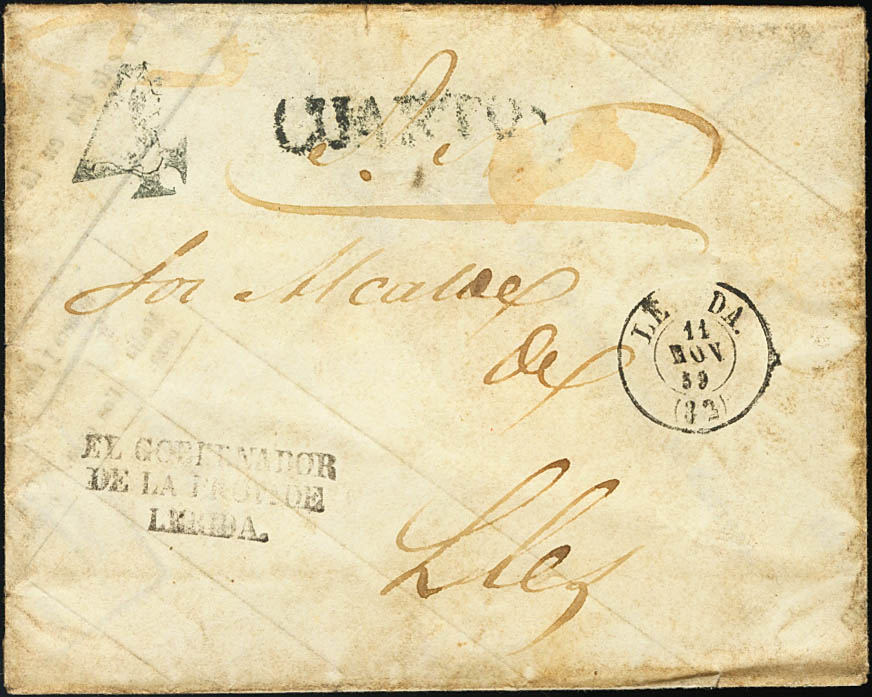 4 CUARTOS
Sor Alcalde
de
Lles
LE DA.
11
NOV
59
(32)
EL GOBERNADOR
DE LA PROV. DE
LERIDA.